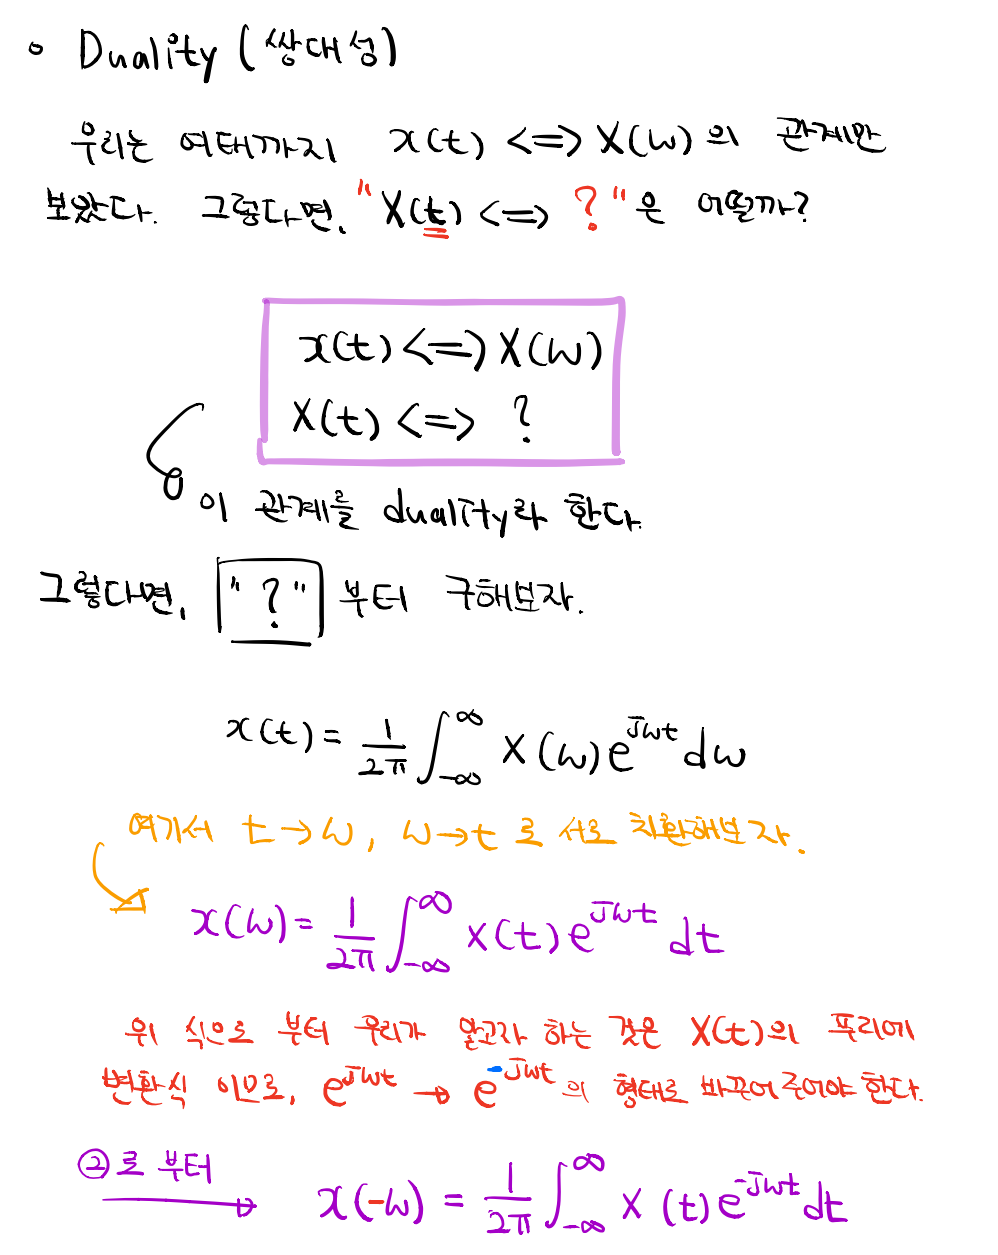 ∘ Duality (쌍대성)
우리는 여태까지 x(t) <=> X(ω)의 관계만
보았다. 그렇다면, "X(t) <=> ?"은 어떨까?
x(t) <=> X(ω)
X(t) <=> ?
이 관계를 duality라 한다.
그렇다면, "?" 부터 구해보자.
x(t) = 1/2π ∫_{-∞}^{∞} X(ω) e^{jωt} dω
여기서 t → ω, ω → t 로 서로 치환해보자.
x(ω) = 1/2π ∫_{-∞}^{∞} X(t) e^{jωt} dt
위 식으로 부터 우리가 알고자 하는 것은 X(t)의 푸리에
변환식 이므로, e^{jωt} → e^{-jωt}의 형태로 바꾸어 주어야 한다.
②로 부터 x(-ω) = 1/2π ∫_{-∞}^{∞} X(t) e^{-jωt} dt